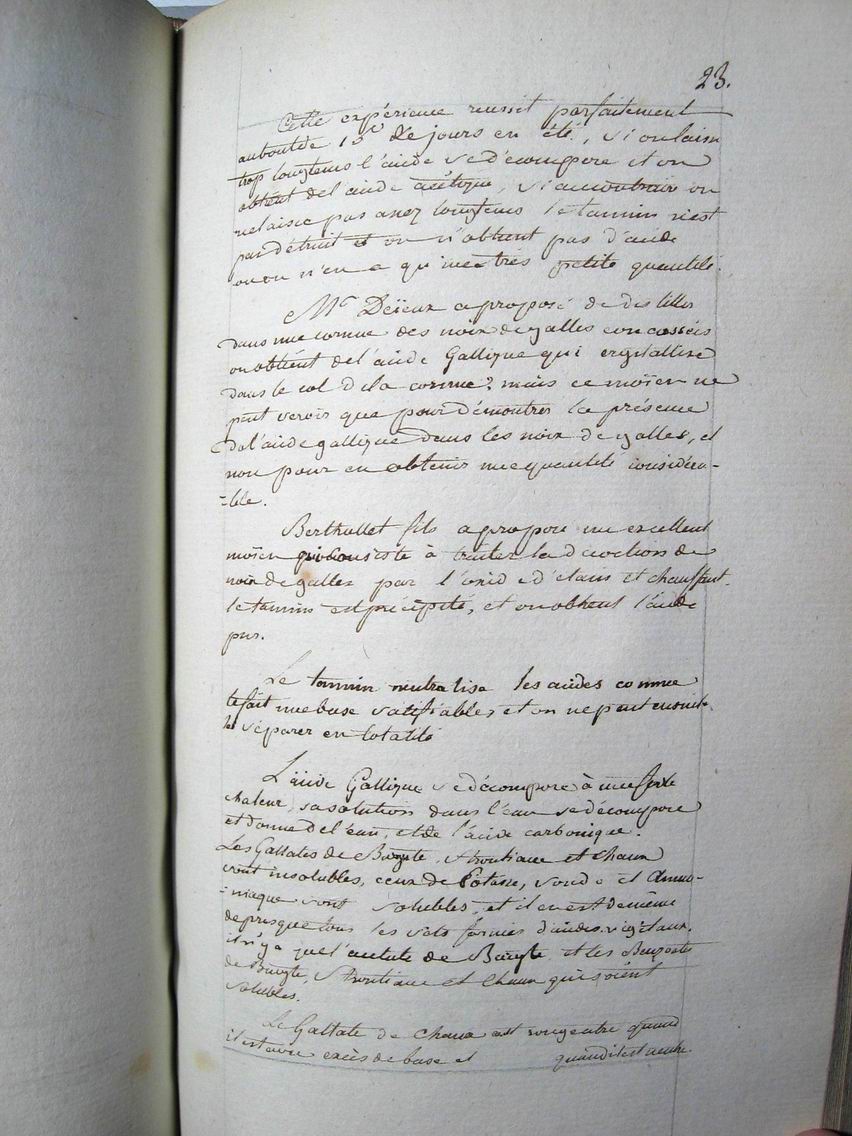 23.
Cette expérience reussit parfaitement
auboutde 15 de jours en été, si on laisse
trop longtems l'acide se décompose et on
obtient del'acide acétique, si aucontraire on
nelaisse pas assez longtems le tannin n'est
pas détruit et on n'obtient pas d'acide
ou on n'en a qu'une très petite quantité.
Mr Deïeux a proposé de distiller
dans une cornue des noix de galles concassées
on obtient de l'acide Gallique qui crystallise
dans le col dela cornue; mais ce moïen ne
peut servir que pour démontrer la présence
de l'acide gallique dans les noix de galles, et
non pour en obtenir une quantité considéra-
-ble.
Berthollet fils a proposé un excellent
moïen qui consiste à traiter la décoction de
noix de galles par l'oxide d'étain et chauffant.
le tannin est précipité, et on obtient l'acide
pur.
Le tannin neutralise les acides comme
le fait une base salifiables, et on ne peut ensuite
les séparer en totalité
L'acide Gallique se décompose à une forte
chaleur, sa solution dans l'eau se décompose
et donne del'eau, et de l'acide carbonique.
Les Gallates de Baryte, Strontiane et Chaux
sont insolubles, ceux de Potasse, soude et Ammo-
-niaque sont solubles, et il en est demême
de presque tous les sels formés d'acides végétaux.
il n'y a que l'acétate de Baryte et les Benzoates
de Baryte, Strontiane et Chaux qui soient
solubles.
Le Gallate de Chaux est rougeatre quand
il est avec excès de base et quand il est neutre.